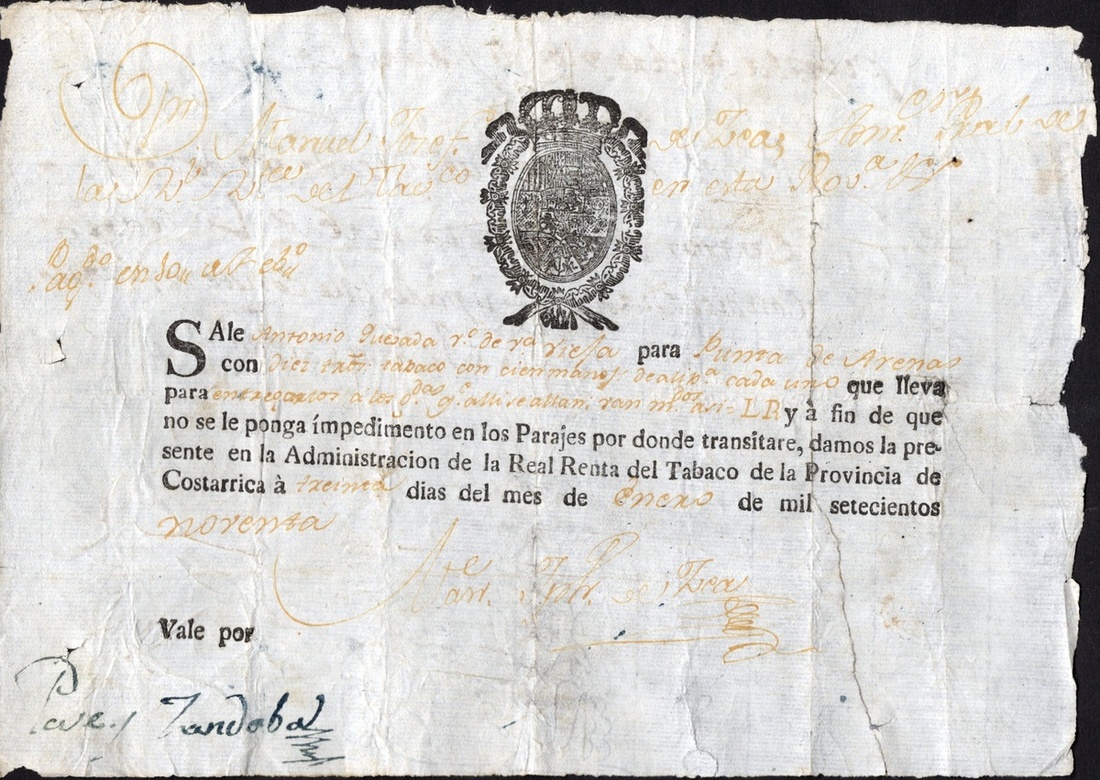 Dn Manuel Josef de Zea, Admr. Gral de
las Rs. del Tavco en esta Prov.a
Pagdo en 30
SAle Antonio Quesada vo. de va. viefa para Punta de Arenas
con diez tabaco con cien manos de a cada uno que lleva
para entregarlos a los y à fin de que
no se le ponga ímpedimento en los Parajes por donde transitare, damos la pre-
sente en la Administracion de la Real Renta del Tabaco de la Provincia de
Costarrica à treinta dias del mes de Enero de mil setecientos
noventa
de Zea
Vale por
Pase / Zandobal